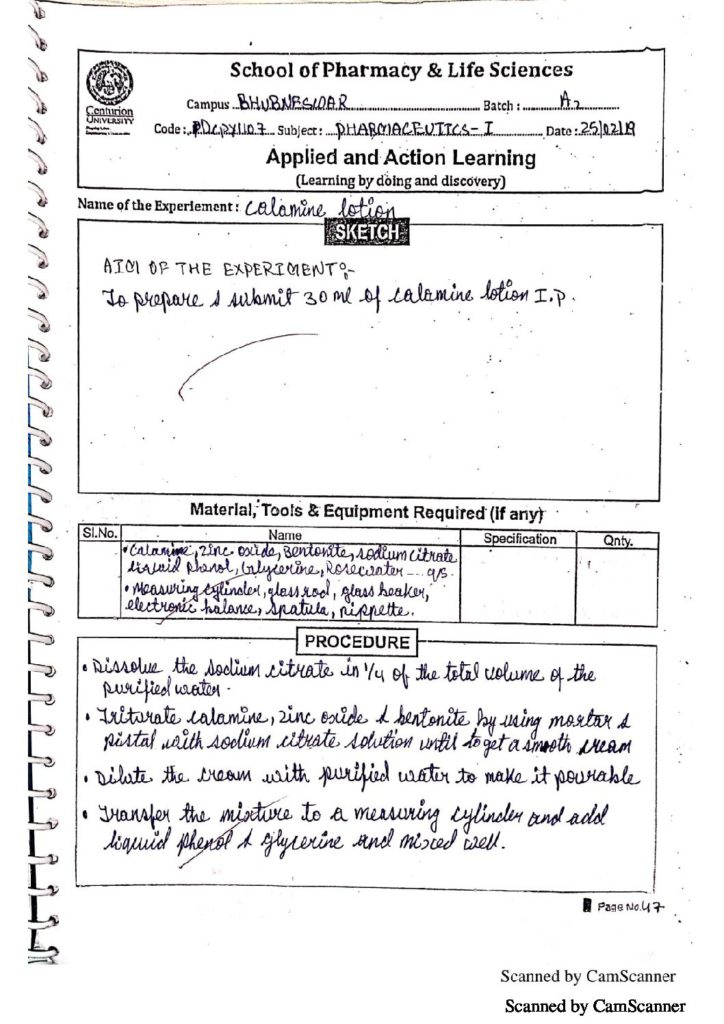 School of Pharmacy & Life Sciences
Centurion
UNIVERSITY
Campus..BHUBNESWAR Batch : A2
Code : PDCPY1107 Subject : PHARMACEUTICS - I Date : 25/02/19
Applied and Action Learning
(Learning by doing and discovery)
Name of the Experiement : Calamine lotion
SKETCH
AIM OF THE EXPERIMENT :-
To prepare & submit 30 ml of Calamine lotion I.P.
Material, Tools & Equipment Required (if any)
Sl.No. Name Specification Qnty.
• Calamine, Zinc oxide, Bentonite, sodium citrate
liquid phenol, Glycerine, Rosewater --- q/s.
• Measuring cylinder, glass rod, glass beaker,
electronic balance, Spatula, pippette.
PROCEDURE
• Dissolve the sodium citrate in 1/4 of the total volume of the
purified water.
• Triturate calamine, zinc oxide & bentonite by using mortar &
pistal with sodium citrate solution until to get a smooth cream
• Dilute the cream with purified water to make it pourable
• Transfer the mixture to a measuring cylinder and add
liquid phenol & glycerine and mixed well.
Page No. 47
Scanned by CamScanner
Scanned by CamScanner